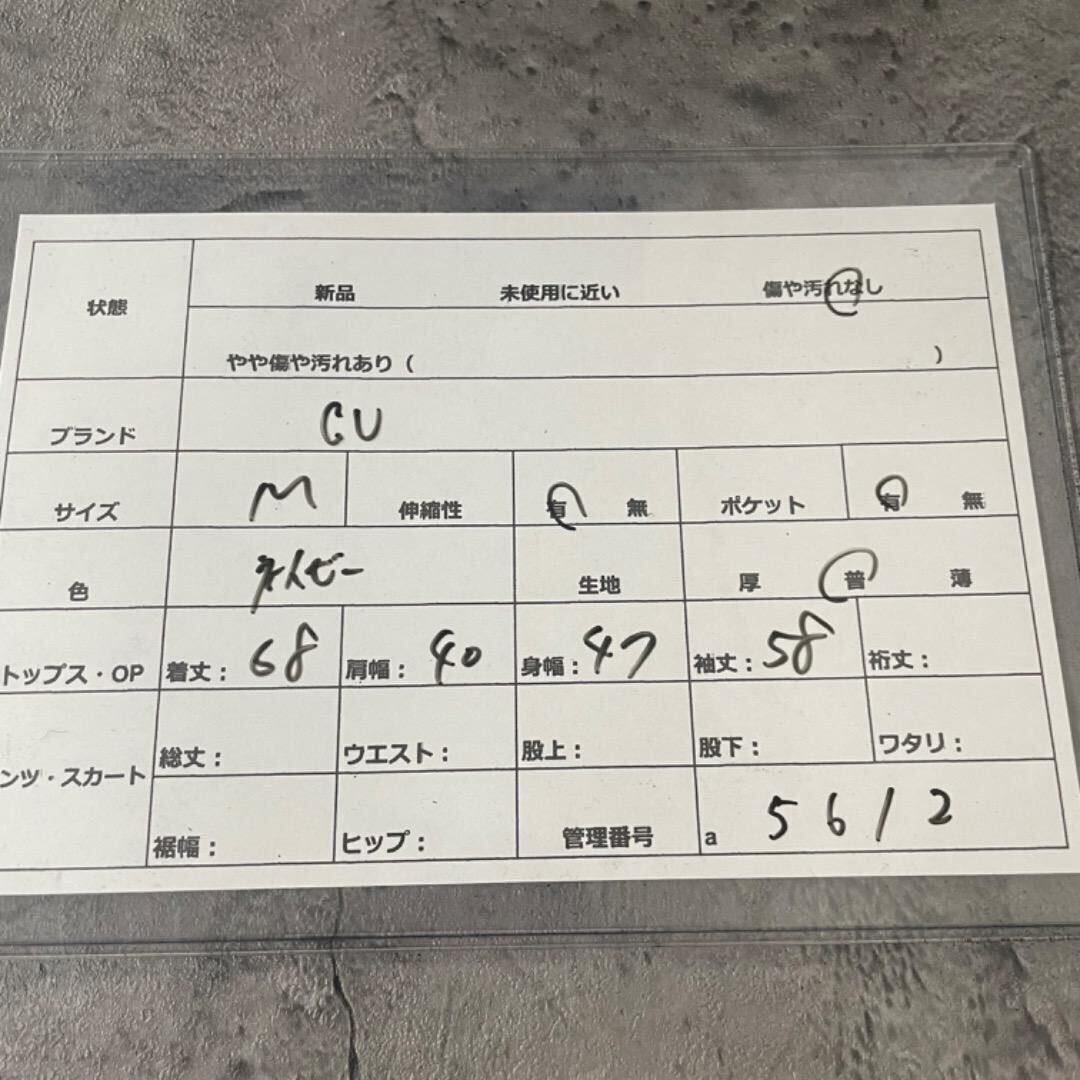 状態 新品 未使用に近い 傷や汚れなし
やや傷や汚れあり ( )
ブランド GU
サイズ M 伸縮性 有 無 ポケット 有 無
色 ネイビー 生地 厚 普 薄
トップス・OP 着丈： 68 肩幅： 40 身幅： 47 袖丈： 58 裄丈：
ンツ・スカート 総丈： ウエスト： 股上： 股下： ワタリ：
裾幅： ヒップ： 管理番号 a 5612